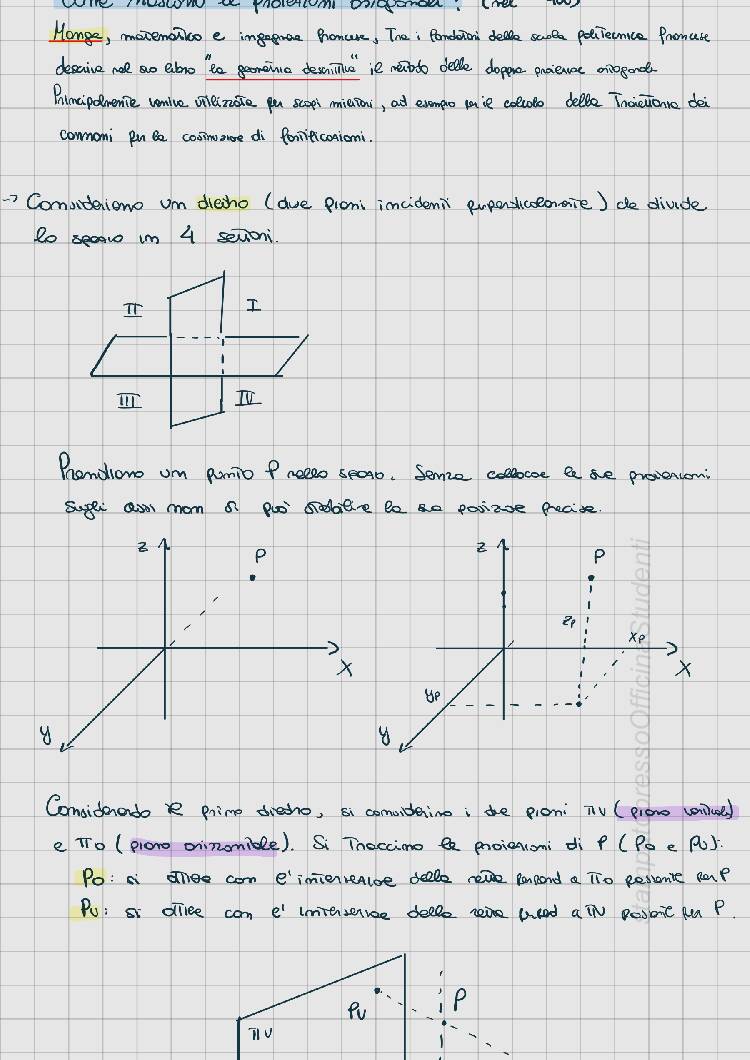 Come nascono le proiezioni ortogonali? (nel '700)
Monge, matematico e ingegnere francese, Tra i fondatori della scuola politecnica francese
descrive nel suo libro "la geometria descrittiva" il metodo delle doppie proiezioni ortogonali.
Principalmente veniva utilizzata per scopi militari, ad esempio per il calcolo della Traiettoria dei
cannoni per la costruzione di fortificazioni.
→ Consideriamo un diedro (due piani incidenti perpendicolarmente) che divide
lo spazio in 4 settori.
II I
III IV
Prendiamo un punto P nello spazio. Senza collocare le sue proiezioni
sugli assi non si può stabilire la sua posizione precisa.
z P
x
y
z P
zp xp
x
yp
y
Considerando il primo diedro, si considerino i due piani πv (piano verticale)
e πo (piano orizzontale). Si Traccino le proiezioni di P (Po e Pv):
Po: si ottiene con l'intersezione della retta perpend a πo passante per P
Pv: si ottiene con l'intersezione della retta perpend a πv passante per P.
Pv P
πv
stampatopressoOfficinaStudenti